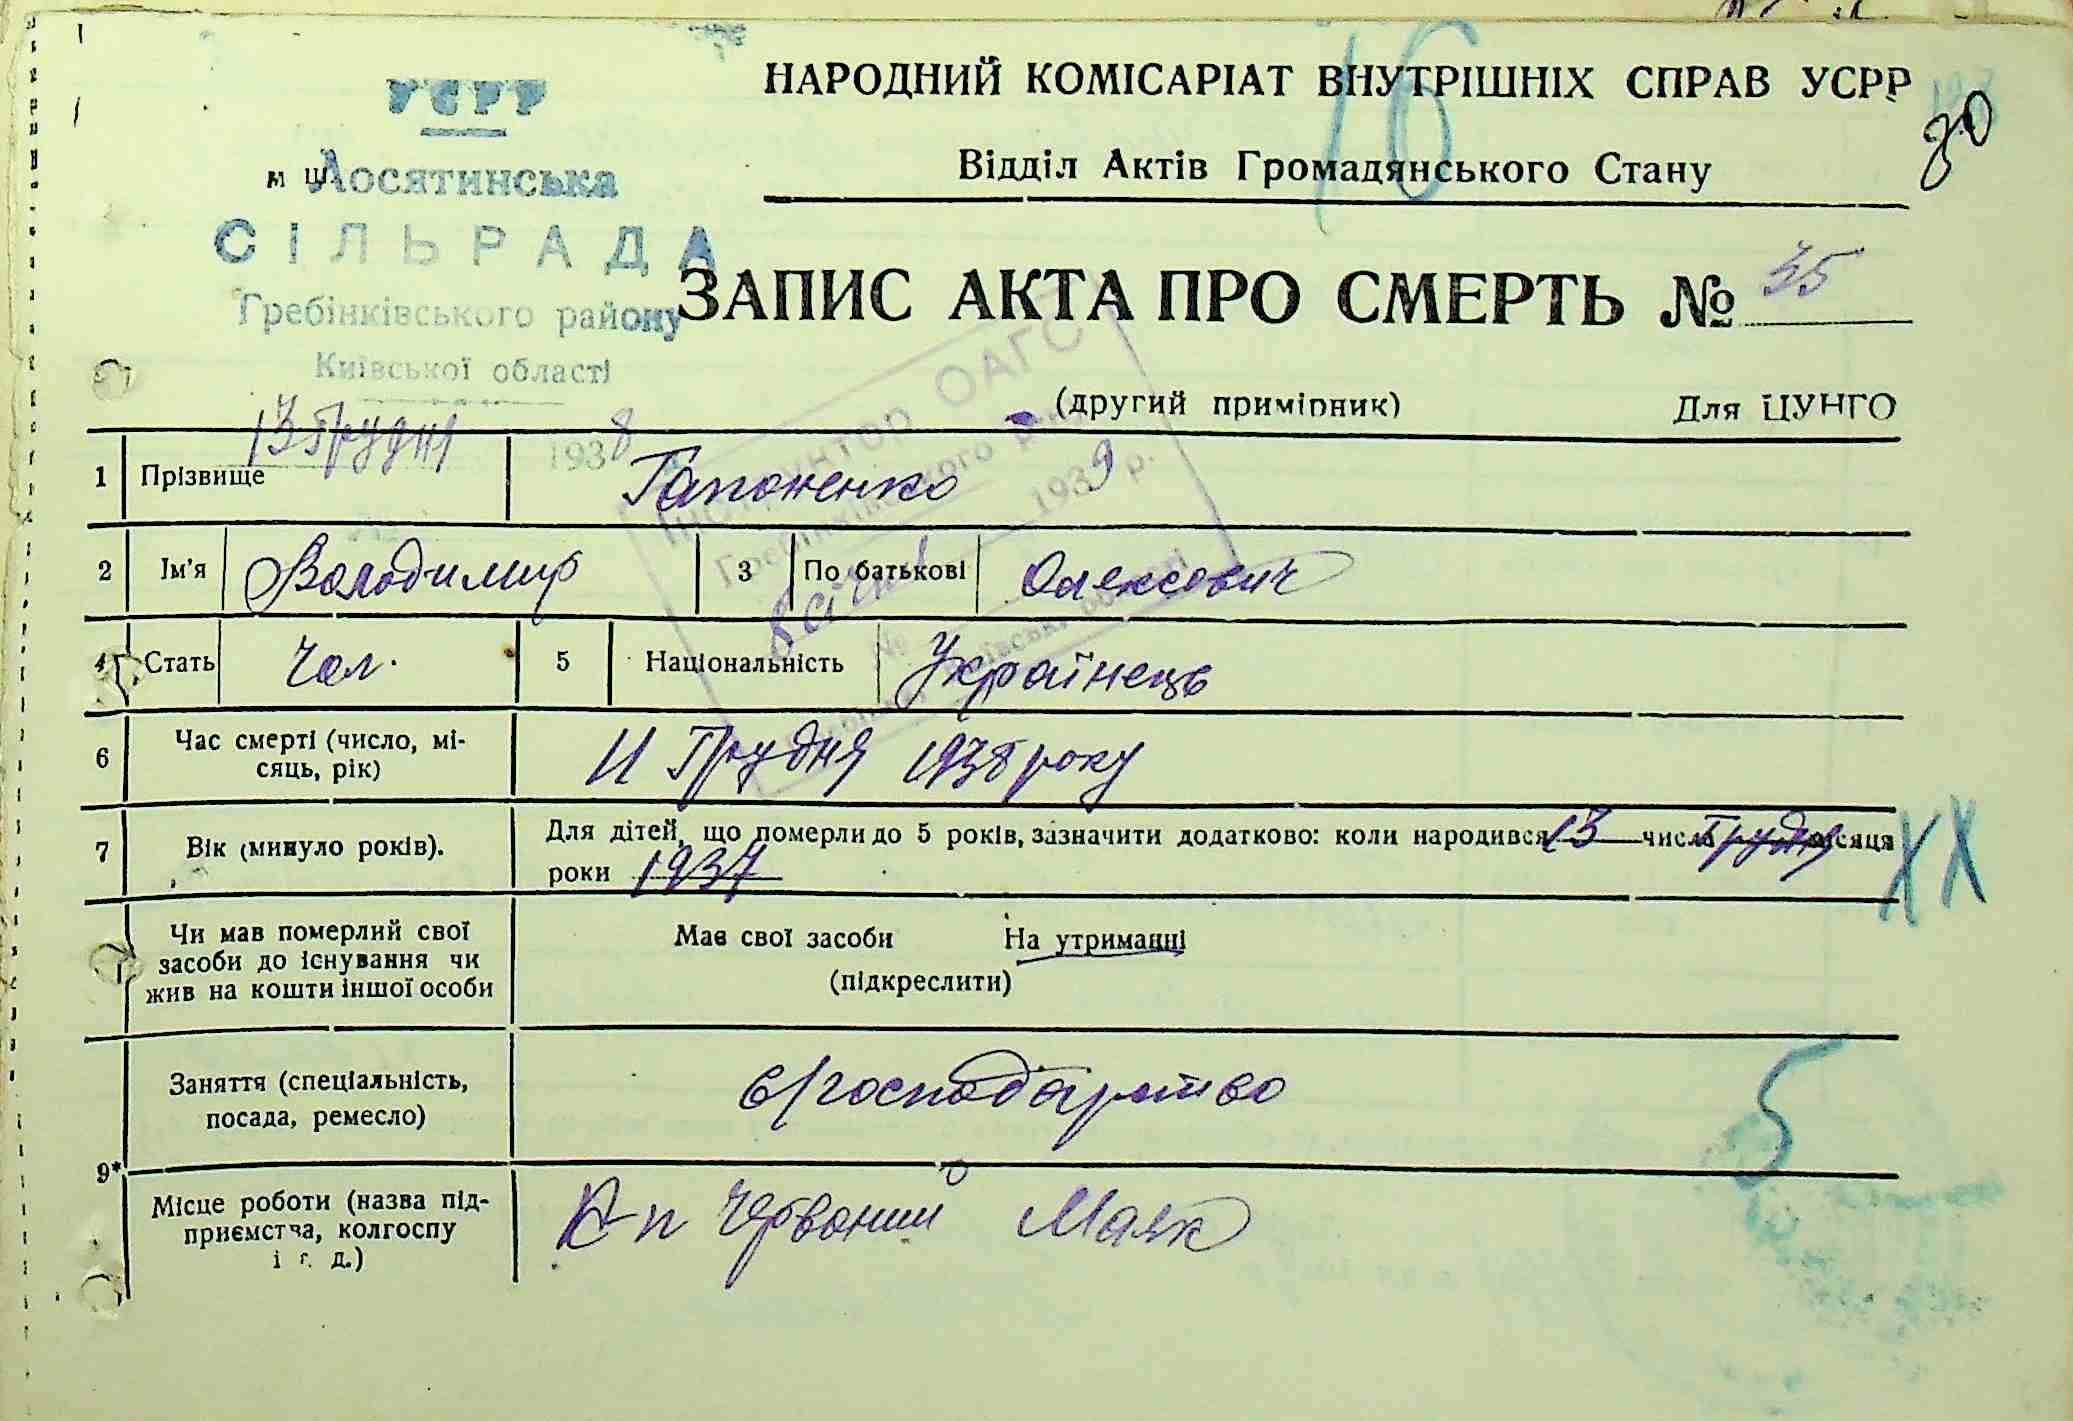 НАРОДНИЙ КОМІСАРІАТ ВНУТРІШНІХ СПРАВ УСРР
16
30
Відділ Актів Громадянського Стану
УСРР
м Ш
Лосятинська
СІЛЬРАДА
Гребінківського району
Київської області
13 Грудня 1938
ЗАПИС АКТА ПРО СМЕРТЬ № 35
(другий примірник) Для ЦУНГО
Інспуктор ОАГС
Гребінківського р-ну
8 січня 1939 р.
№
1 Прізвище Гапоненко
2 Ім'я Володимир 3 По батькові Олексович
4 Стать Чол. 5 Національність Українець
6 Час смерті (число, мі-
сяць, рік) 11 Грудня 1938 року
7 Вік (минуло років). Для дітей, що померли до 5 років, зазначити додатково: коли народився 13 числа Грудня місяця
роки 1937
XX
Чи мав померлий свої
засоби до існування чи
жив на кошти іншої особи
Має свої засоби На утриманні
(підкреслити)
Заняття (спеціальність,
посада, ремесло)
с/господарство
5
9*
Місце роботи (назва під-
приємства, колгоспу
і т. д.)
К-п Червоний Маяк